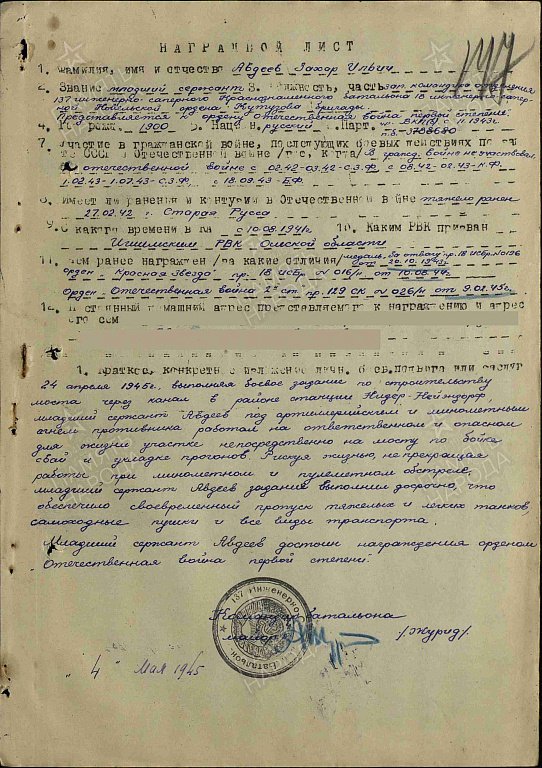 147
НАГРАДНОЙ ЛИСТ
1. Фамилия, имя и отчество Авдеев Захар Ильич
2. Звание младший сержант 3. Должность, часть зам. командира отделения
137 инженерно-саперного Краснознаменного батальона 18 инженерно-сапер-
ной ордена Кутузова бригады.
Представляется к ордену Отечественная война первой степени.
4. Год рожд. 1900 5. Нац. русский 6. Парт. ВКП(б) с 1943г.
п.б. 5708680
7. Участие в гражданской войне, последующих боевых действиях по
СССР и Отечественной войне /где, когда/ В гражд. войне не участвовал,
в отечественной войне с 02.42-03.42-С.З.Ф, с 08.42-02.43-К.Ф.
1.02.43-1.07.43-С.З.Ф, с 18.09.43-Б.Ф.
8. Имеет ли ранения и контузии в Отечественной войне тяжело ранен
27.02.42 г. Старая Русса
9. С какого времени в КА с 10.08.1941г. 10. Каким РВК призван
Ишимским РВК Омской области
11. Чем ранее награжден /за какие отличия/ медаль "За отвагу" пр. 18 исбр. №0196
от 30.10.1943г.
орден "Красная Звезда" пр. 18 исбр № 016/н от 10.08.44г.
Орден "Отечественная война" 2й ст пр. 129 СК № 026/н от 9.02.45г.
12. Постоянный домашний адрес представляемого к награждению и адрес
его сем
1. Краткое, конкретное изложение личн. боев. подвига или заслуг
24 апреля 1945г., выполняя боевое задание по строительству
моста через канал в районе станции Нидер-Нейэндорф,
младший сержант Авдеев под артиллерийским и минометным
огнем противника работал на ответственном и опасном
для жизни участке непосредственно на мосту по забойке
свай и укладке прогонов. Рискуя жизнью, не прекращая
работы при минометном и пулеметном обстреле,
младший сержант Авдеев задание выполнил досрочно, что
обеспечило своевременный пропуск тяжелых и легких танков,
самоходные пушки и все виды транспорта.
Младший сержант Авдеев достоин награждения орденом
Отечественная война первой степени.
137 Инженерно
Батальон
Командир батальона
майор /Журид/
"4" Мая 1945